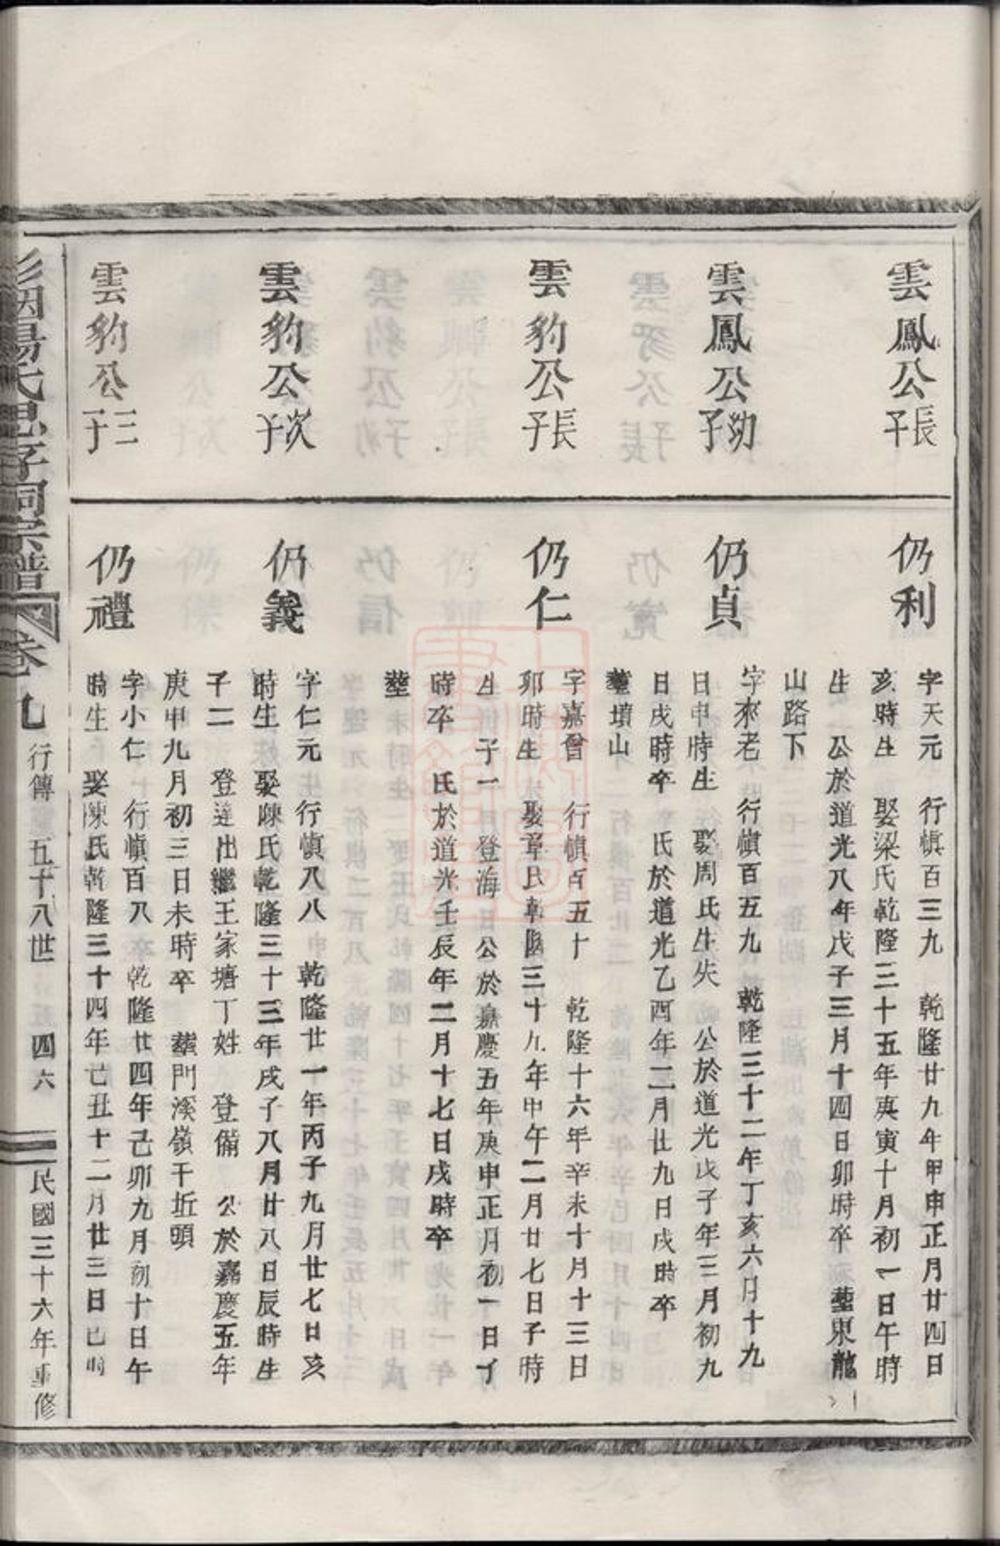 雲鳳公長子
仍利
字天元　行慎百三九　乾隆廿九年甲申正月廿四日
亥時生　娶梁氏乾隆三十五年庚寅十月初一日午時
生　公於道光八年戊子三月十四日卯時卒塟東龍
山路下
雲鳳公幼子
仍貞
字來老　行慎百五九　乾隆三十二年丁亥六月十九
日申時生　娶周氏生失　公於道光戊子年三月初九
日戌時卒　氏於道光乙酉年二月廿九日戌時卒
塟墳山
雲豹公長子
仍仁
字嘉會　行慎百五十　乾隆十六年辛未十月十三日
卯時生　娶章氏乾隆三十九年甲午二月廿七日子時
生　子一　登海　公於嘉慶五年庚申正月初一日丁
時卒　氏於道光壬辰年二月十七日戌時卒
塟
雲豹公次子
仍義
字仁元　行慎八八　乾隆廿一年丙子九月廿七日亥
時生　娶陳氏乾隆三十三年戌子八月廿八日辰時生
子二　登達出繼王家塘丁姓　登備　公於嘉慶五年
庚申九月初三日未時卒　塟門溪嶺干坵頭
雲豹公三子
仍禮
字小仁　行慎百八　乾隆廿四年己卯九月初十日午
時生　娶陳氏乾隆三十四年己丑十二月廿三日巳時
湯氏思孝祠宗譜　卷九　行傳　五十八世　四六　民國三十六年重修